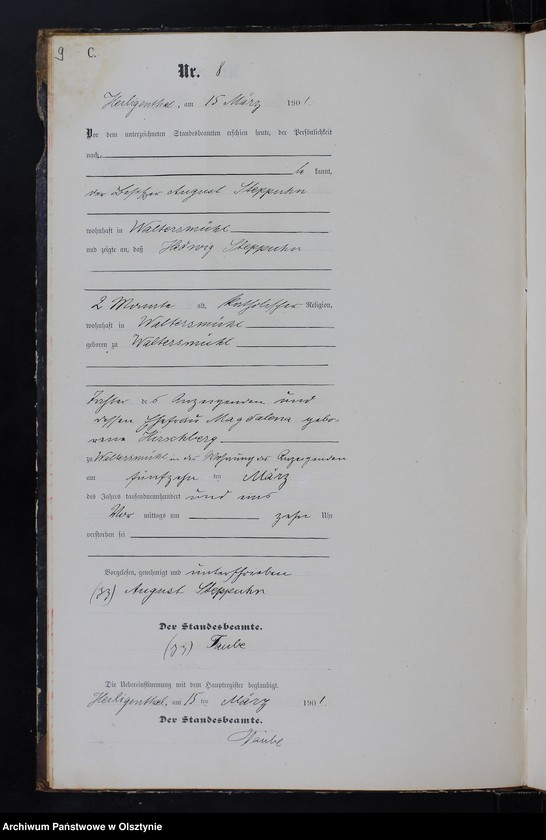 9 C.
Nr. 8
Heiligenthal, am 15 März 1901.
Vor dem unterzeichneten Standesbeamten erschien heute, der Persönlichkeit
nach,
be kannt,
der Besitzer August Steppuhn
wohnhaft in Waltersmühl
und zeigte an, daß Hedwig Steppuhn
2 Monate alt, katholischer Religion,
wohnhaft in Waltersmühl
geboren zu Waltersmühl
Tochter des Anzeigenden und
dessen Ehefrau Magdalena gebo-
rene Hirschberg
zu Waltersmühl in der Wohnung des Anzeigenden
am fünfzehn ten März
des Jahres tausendneunhundert und eins
Vor mittags um zehn Uhr
verstorben sei
Vorgelesen, genehmigt und unterschrieben
(gz) August Steppuhn
Der Standesbeamte.
(gz) Taube
Die Uebereinstimmung mit dem Hauptregister beglaubigt.
Heiligenthal, am 15 ten März 1901.
Der Standesbeamte.
Taube
Archiwum Państwowe w Olsztynie